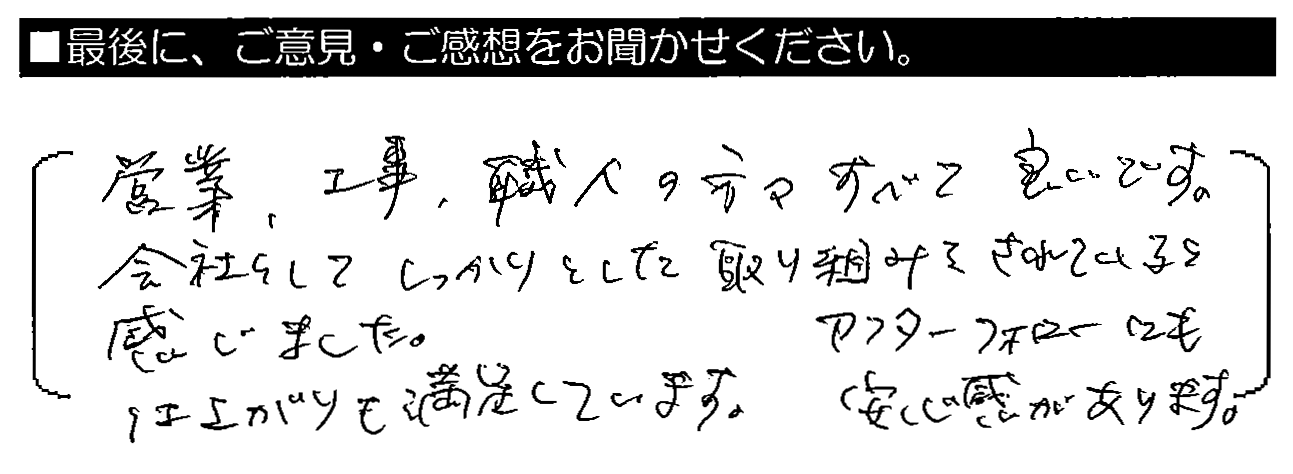 ■最後に、ご意見・ご感想をお聞かせください。
営業、工事、職人の方々すべて良いです。
会社としてしっかりとした取り組みをされていると
感じました。
仕上がりも満足しています。
アフターフォローにも
安心感があります。